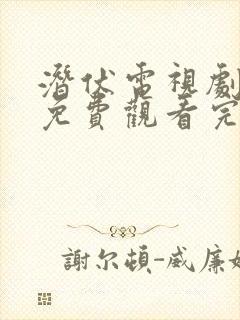 潛伏電視劇
免費觀看完
謝尔頓-威廉